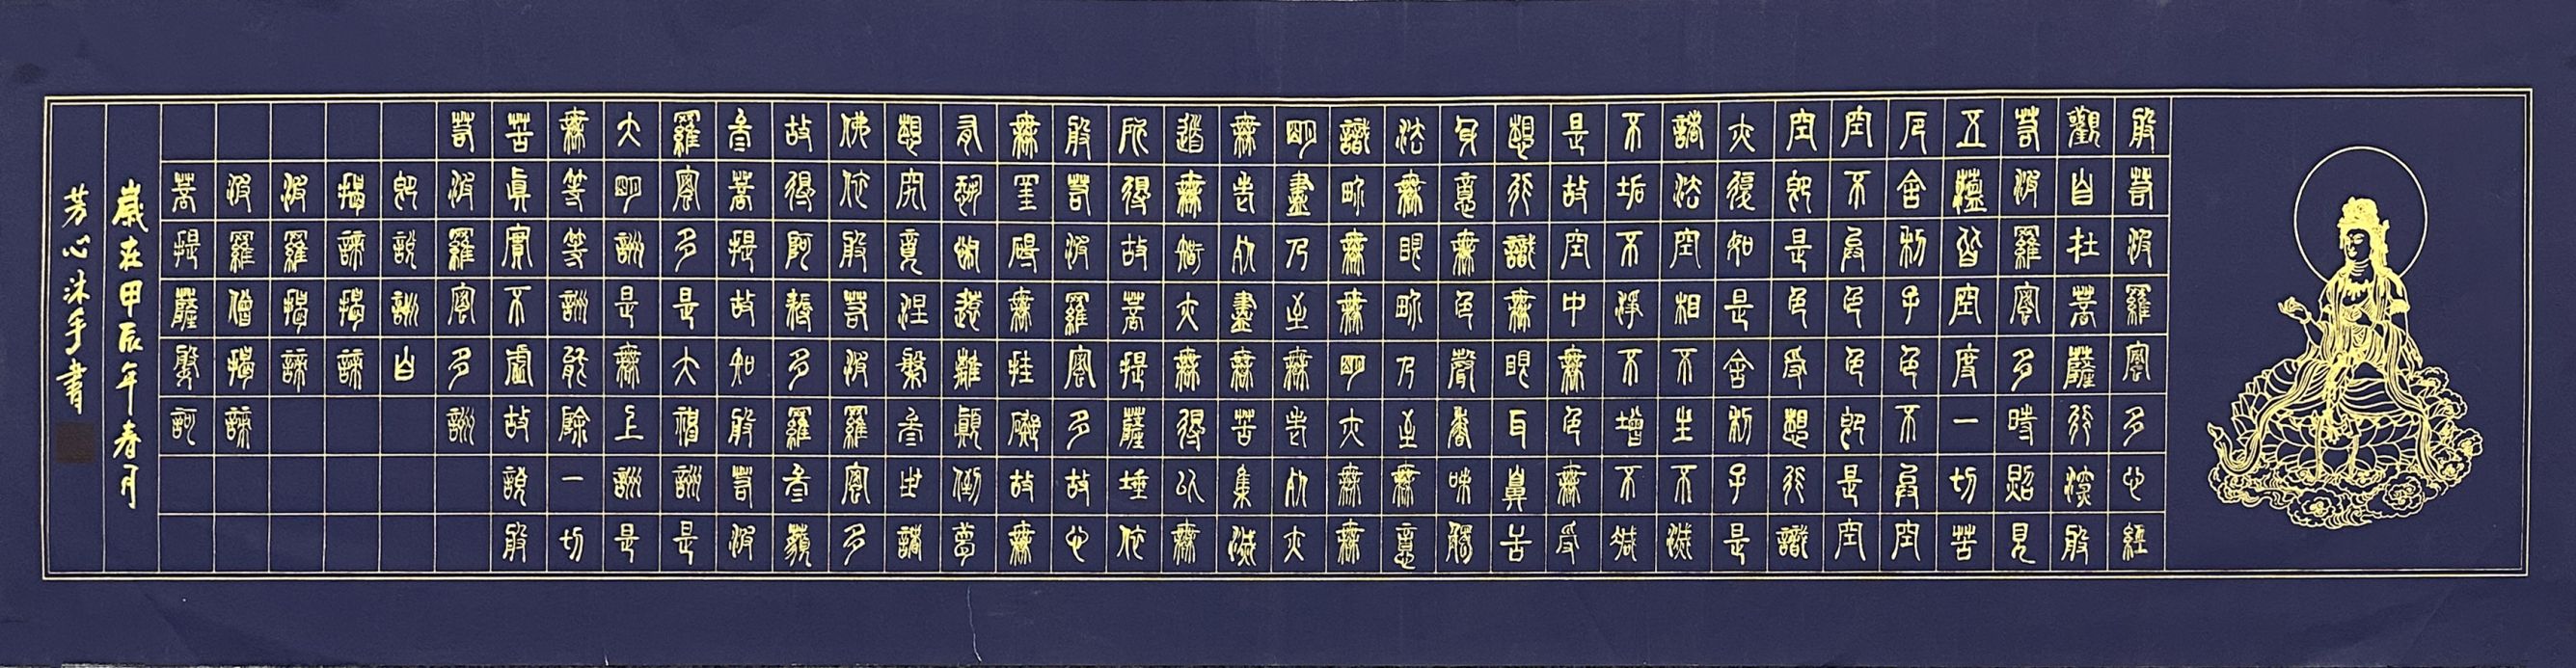 般若波羅蜜多心經
觀自在菩薩行深般
若波羅蜜多時照見
五蘊皆空度一切苦
厄舍利子色不異空
空不異色色即是空
空即是色受想行識
亦復如是舍利子是
諸法空相不生不滅
不垢不淨不增不減
是故空中無色無受
想行識無眼耳鼻舌
身意無色聲香味觸
法無眼界乃至無意
識界無無明亦無無
明盡乃至無老死亦
無老死盡無苦集滅
道無智亦無得以無
所得故菩提薩埵依
般若波羅蜜多故心
無罣礙無罣礙故無
有恐怖遠離顛倒夢
想究竟涅槃三世諸
佛依般若波羅蜜多
故得阿耨多羅三藐
三菩提故知般若波
羅蜜多是大神咒是
大明咒是無上咒是
無等等咒能除一切
苦真實不虛故說般
若波羅蜜多咒
即說咒曰
揭諦揭諦
波羅揭諦
波羅僧揭諦
菩提薩婆訶
歲在甲辰年春月
芳心沐手書